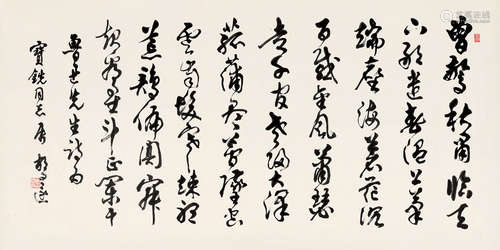 曾驚秋肅臨天
下敢遣春溫上筆
端塵海蒼茫沉
百感金風蕭瑟
走千官老歸大澤
菰蒲盡夢墜空
雲齒髮寒竦聽
荒鷄偏闃寂
起看星斗正闌干
魯迅先生詩句
同志屬